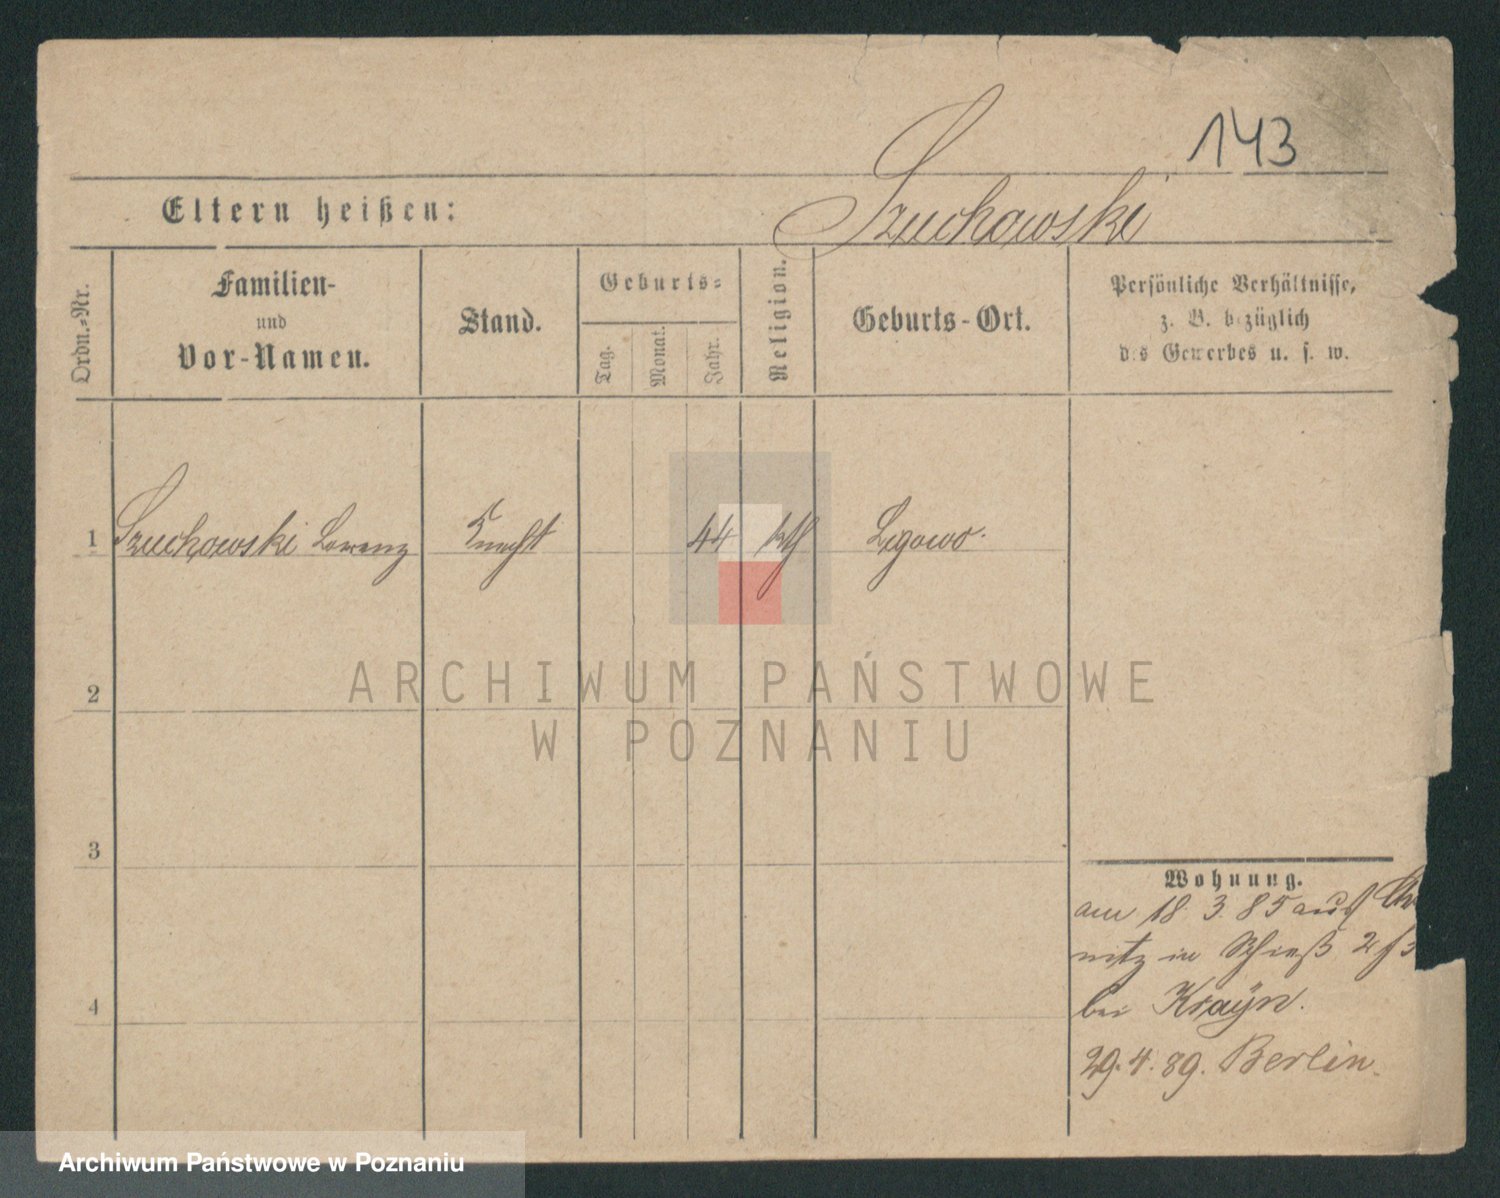 143
Szuchowski
Eltern heißen:
Ordn.-Nr.
Familien-
und
Vor-Namen.
Stand.
Geburts-
Tag.
Monat.
Jahr.
Religion.
Geburts-Ort.
Persönliche Verhältnisse,
z. B. bezüglich
des Gewerbes u. s. w.
1 Szuchowski Lorenz Knecht 44 kth Ligowo.
ARCHIWUM PAŃSTWOWE
W POZNANIU
2
3
4
Wohnung.
am 18. 3. 85 aus
nitz in Schieß 2
bei Krayn.
29. 4. 89. Berlin.
Archiwum Państwowe w Poznaniu